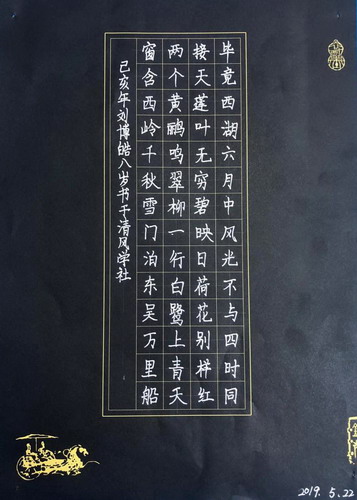 毕竟西湖六月中风光不与四时同
接天莲叶无穷碧映日荷花别样红
两个黄鹂鸣翠柳一行白鹭上青天
窗含西岭千秋雪门泊东吴万里船
己亥年刘博皓八岁书于清风学社
2019.5.22